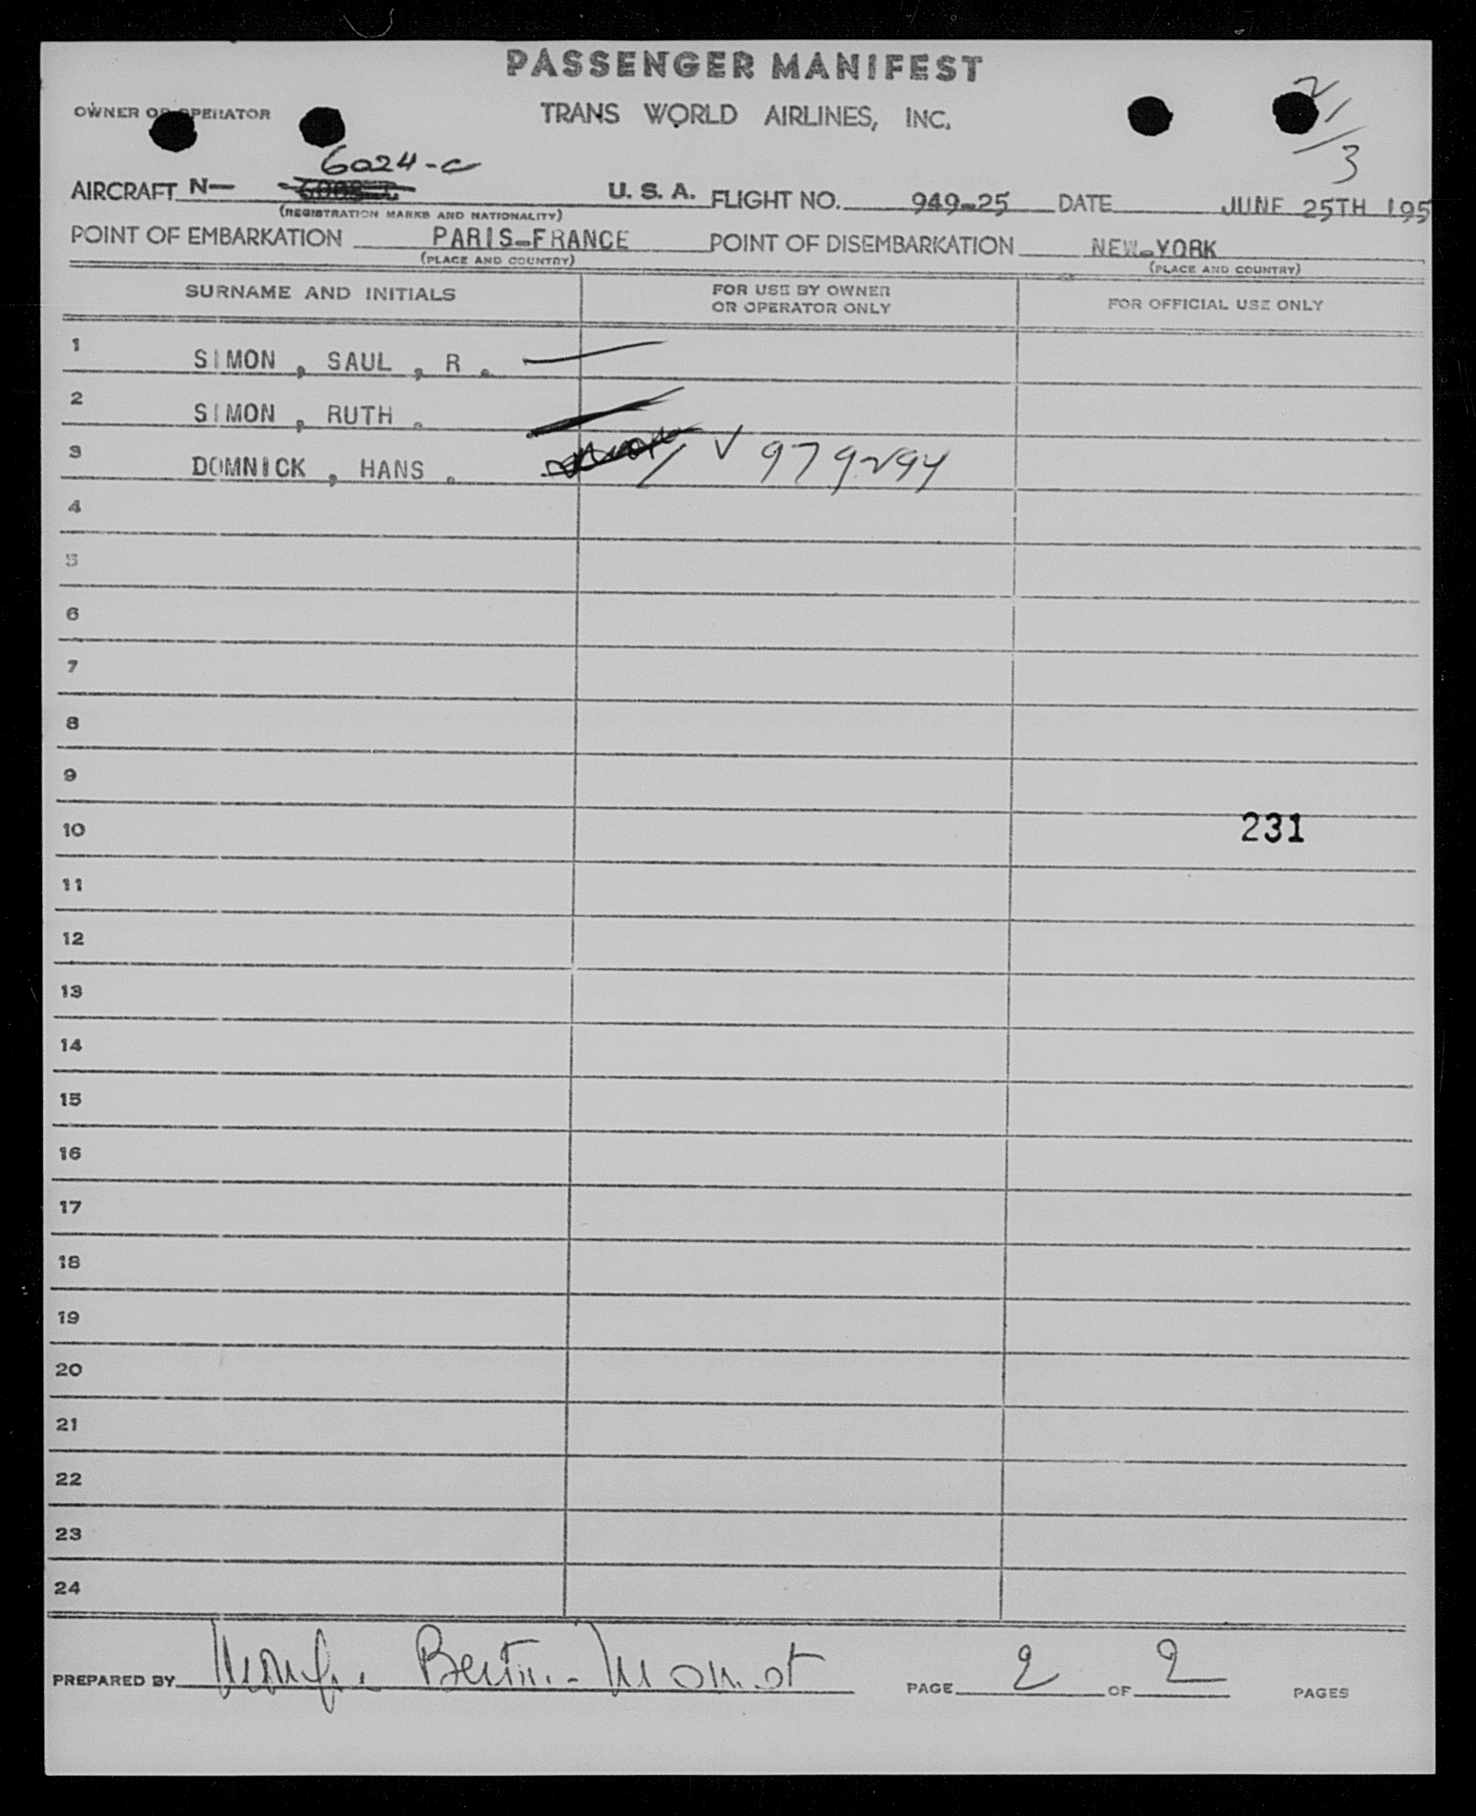 PASSENGER MANIFEST
OWNER OR OPERATOR TRANS WORLD AIRLINES, INC.
21/3
6024-C
AIRCRAFT N— U. S. A. FLIGHT NO. 949-25 DATE JUNE 25TH 195
(REGISTRATION MARKS AND NATIONALITY)
POINT OF EMBARKATION PARIS-FRANCE POINT OF DISEMBARKATION NEW-YORK
(PLACE AND COUNTRY) (PLACE AND COUNTRY)
SURNAME AND INITIALS FOR USE BY OWNER OR OPERATOR ONLY FOR OFFICIAL USE ONLY
1 SIMON , SAUL , R .
2 SIMON , RUTH .
3 DOMNICK , HANS . V 979294
4
5
6
7
8
9
10 231
11
12
13
14
15
16
17
18
19
20
21
22
23
24
PREPARED BY PAGE 2 OF 2 PAGES